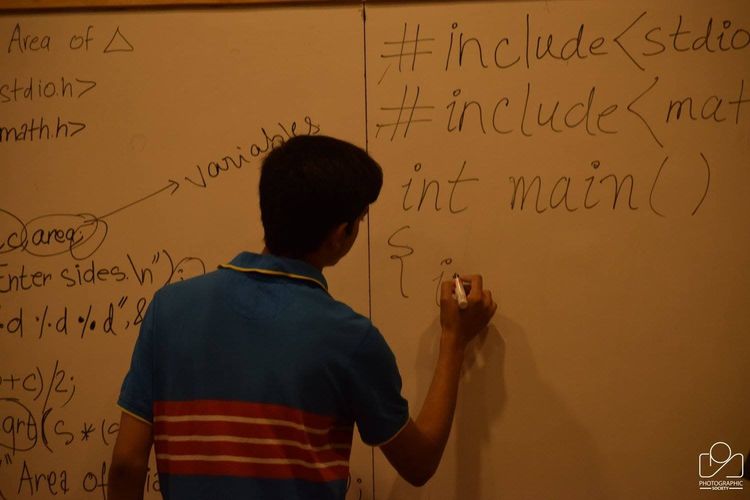 Area of △
stdio.h>
math.h>
variables
c, area;
Enter sides.\n");
%d %d %d", &
+c)/2;
qrt(s*(
"Area of
;
#include<stdio
#include<mat
int main()
{ i
PHOTOGRAPHIC
SOCIETY